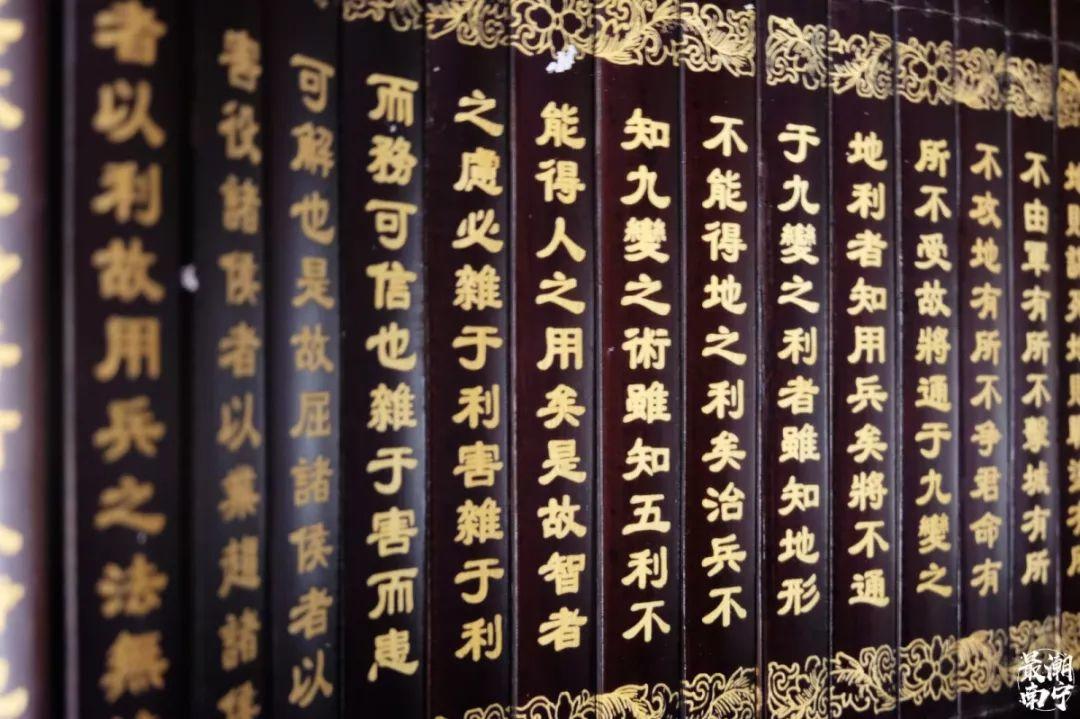 地則謀死地則戰途有所
不由軍有所不擊城有所
不攻地有所不爭君命有
所不受故將通于九變之
地利者知用兵矣將不通
于九變之利者雖知地形
不能得地之利矣治兵不
知九變之術雖知五利不
能得人之用矣是故智者
之慮必雜于利害雜于利
而務可信也雜于害而患
可解也是故屈諸侯者以
害役諸侯者以業趨諸侯
者以利故用兵之法無
最潮
南宁